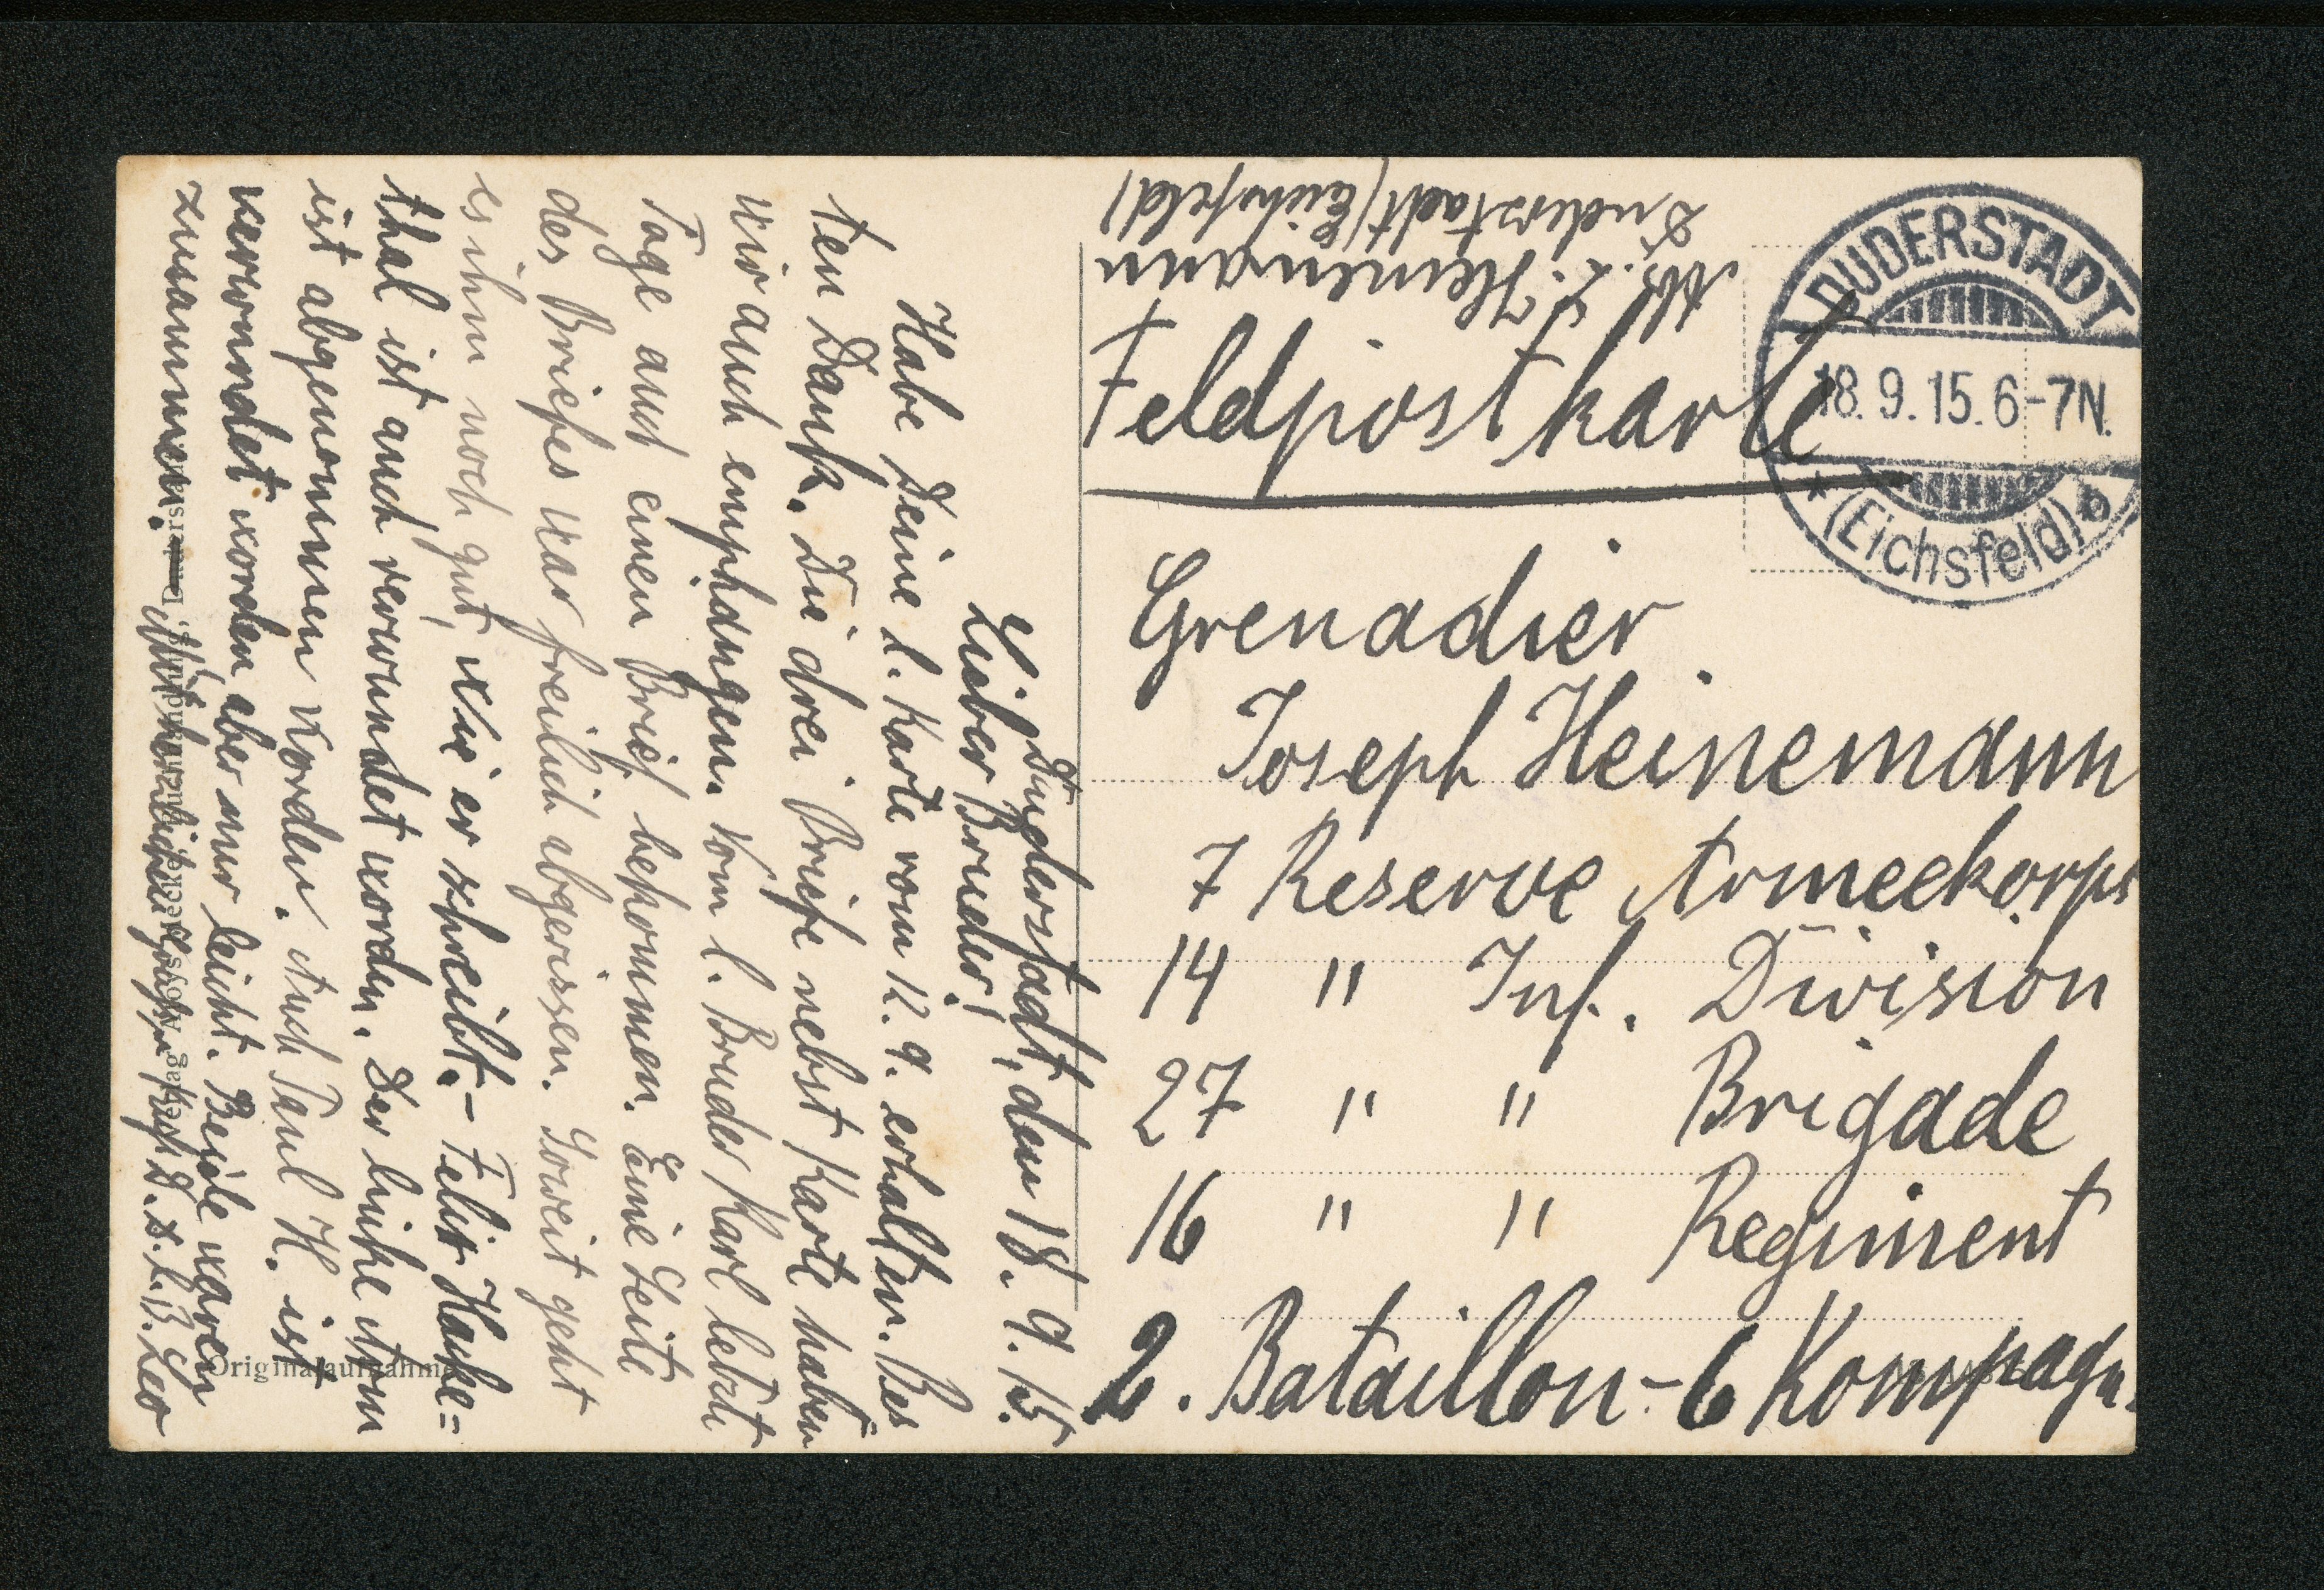 Duderstadt, den 18. 9. 15.
Lieber Bruder!
Habe Deine l. Karte vom 12. 9. erhalten. Bes
ten Dank. Die drei Briefe nebst Karte haben
wir auch emphangen. Vom l. Bruder Karl letzte
Tage auch einen Brief bekommen. Eine Seite
des Briefes war freilich abgerissen. Soweit geht
es ihm noch gut, wie er schreibt. – Felix Hacke=
thal ist auch verwundet worden. Der linke Arm
ist abgenommen worden. Auch Paul H. ist
verwundet worden aber nur leicht. Beide waren
zusammen. — Mit herzlichen Grüßen
D. d. l. B. Leo
Abs. L. Heinemann
Duderstadt (Eichsfeld)
Feldpostkarte
DUDERSTADT
18. 9. 15. 6-7N.
* (Eichsfeld) b
Grenadier
Joseph Heinemann
7 Reserve Armeekorps
14 " Inf. Division
27 " " Brigade
16 " " Regiment
2. Bataillon - 6 Kompagn.
Originalaufnahme